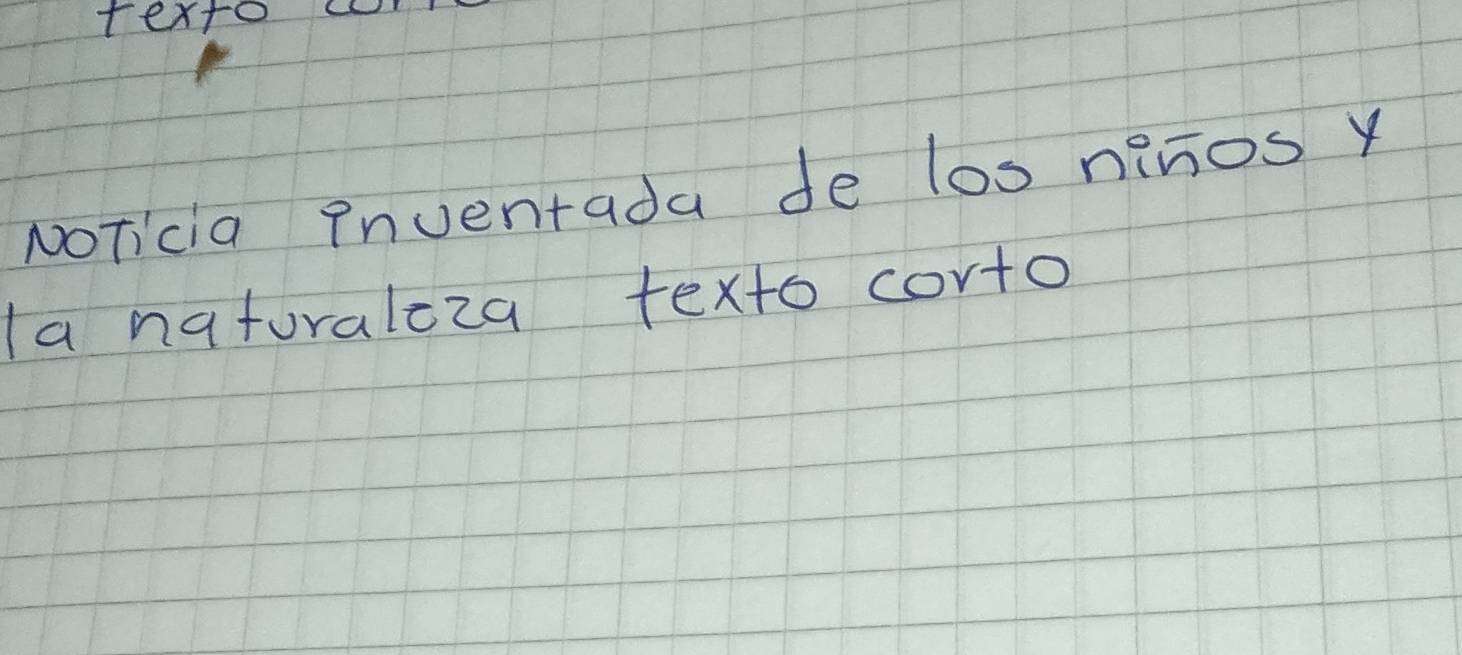 texto
Noticia inventada de los niños y
la naturaleza texto corto